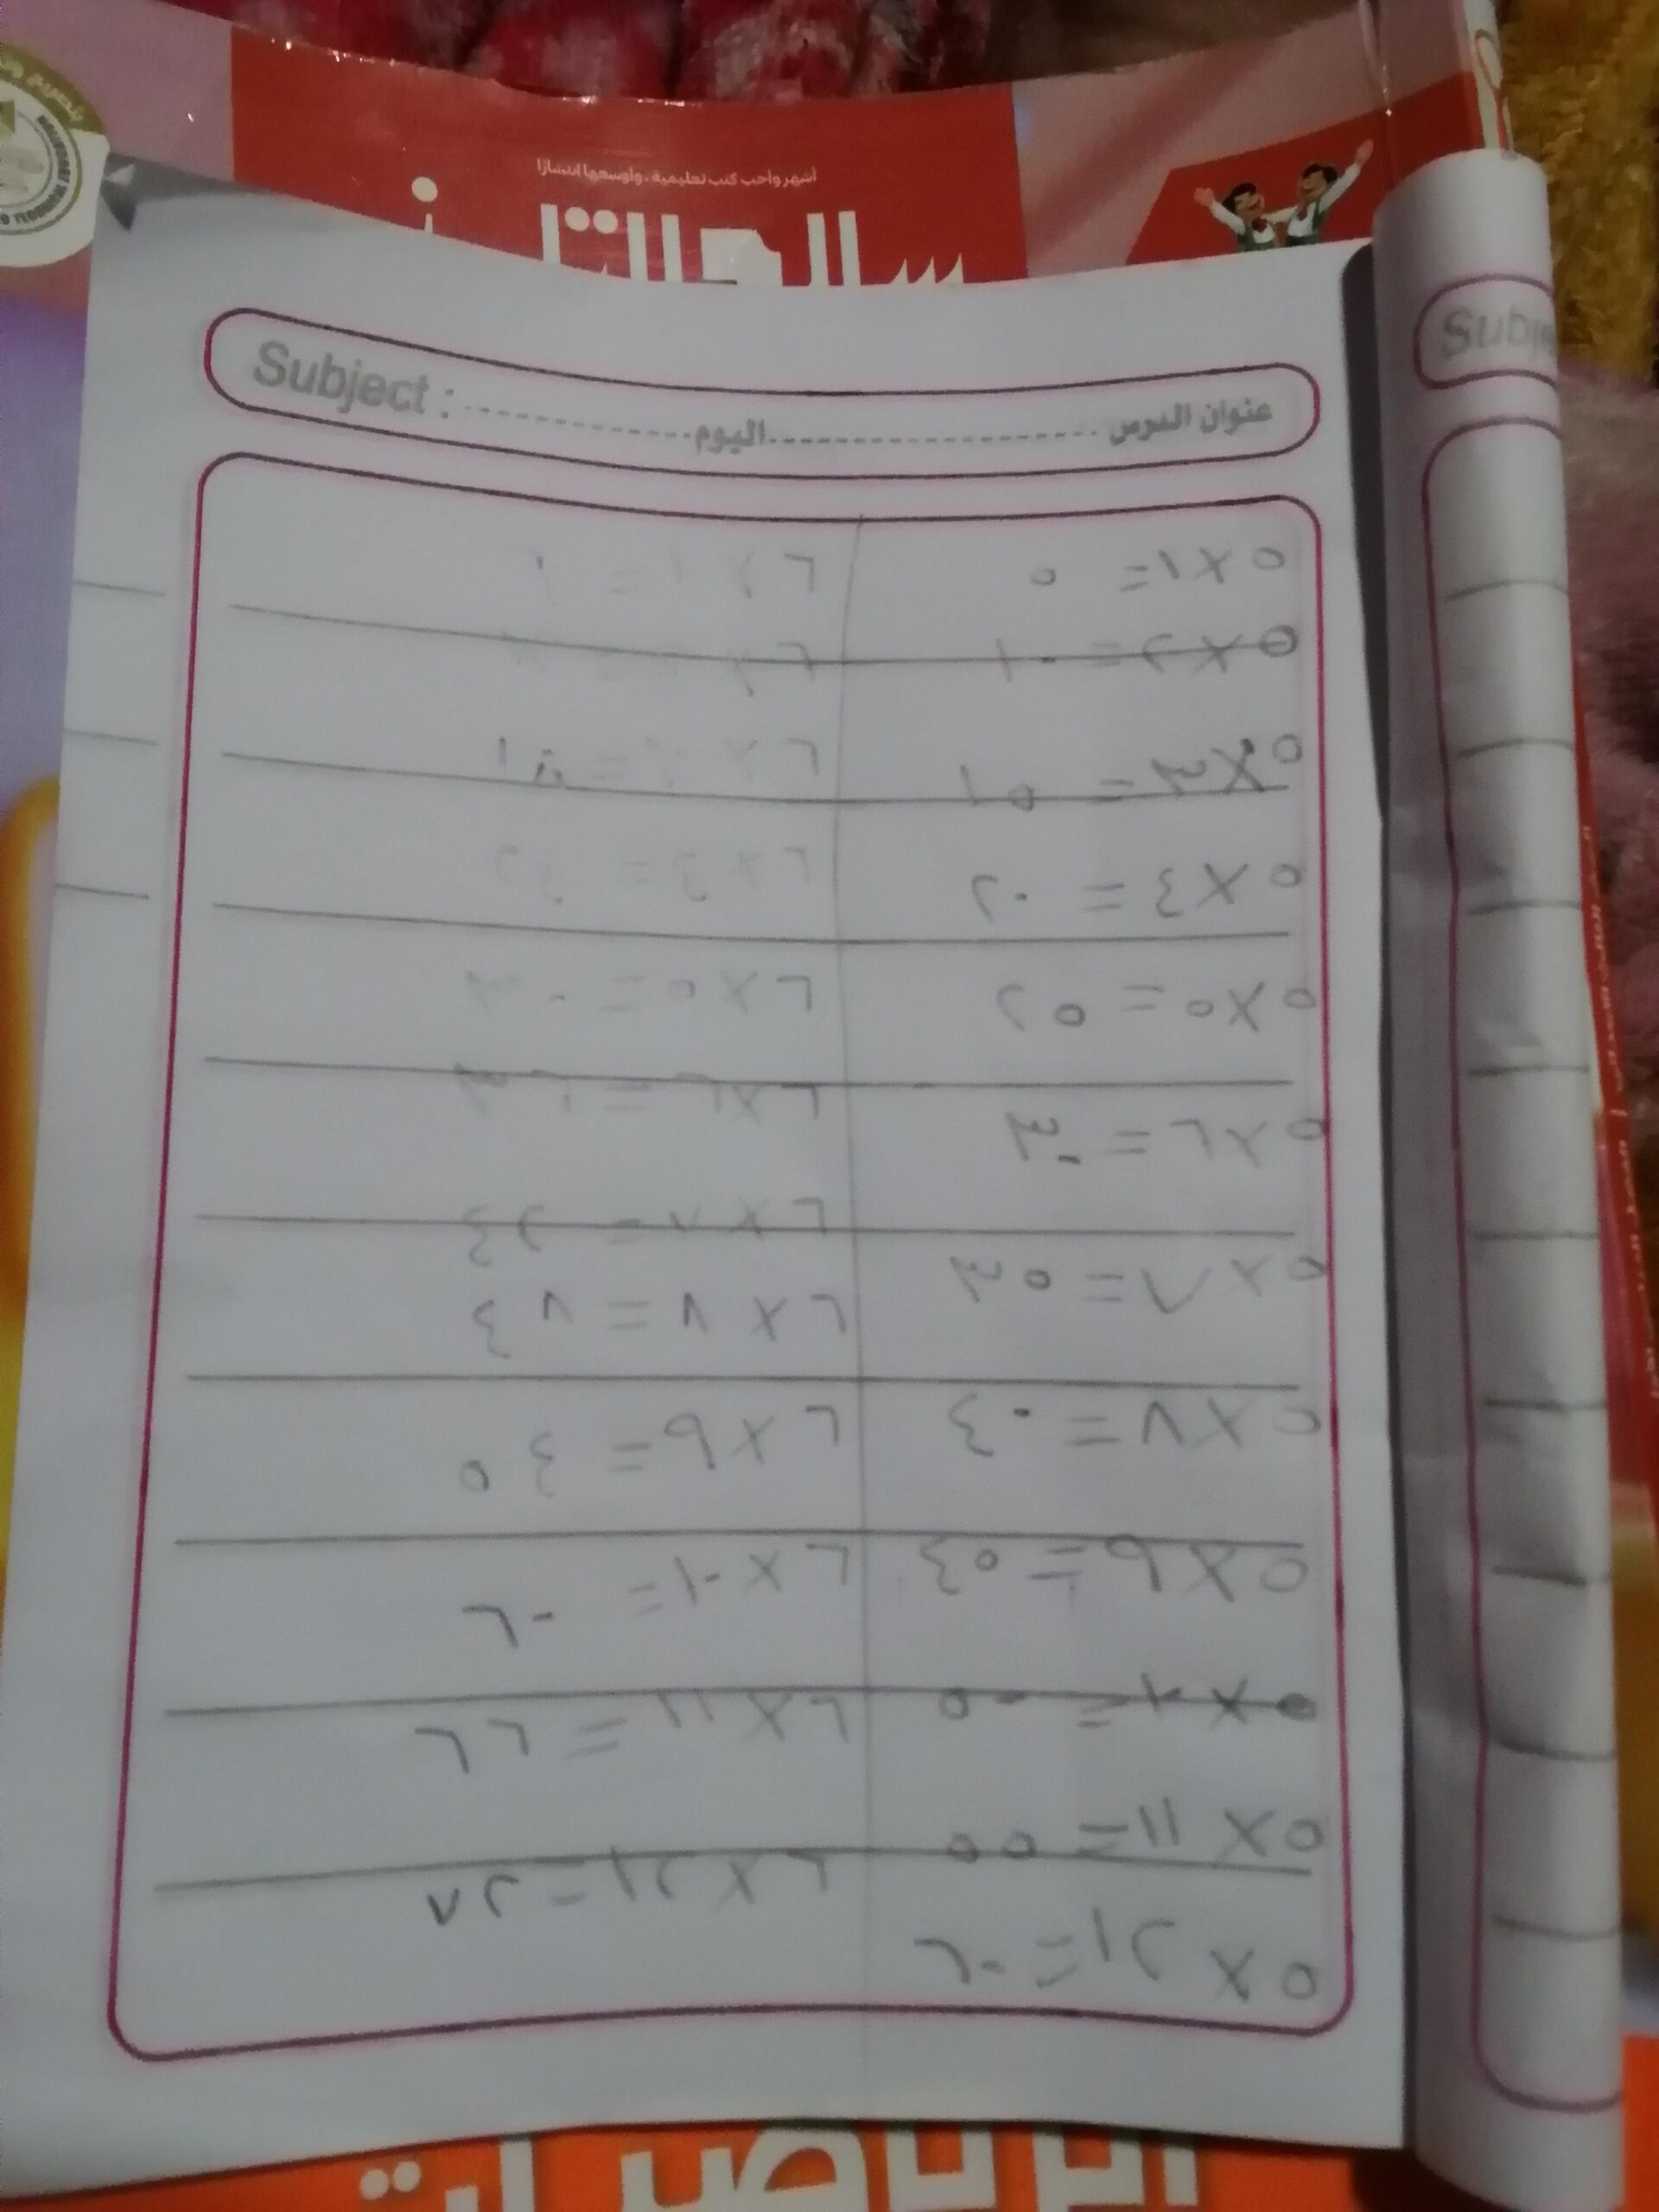 أشهر وأحب كتب تعليمية، وأوسعها انتشارًا
عنوان الدرس ........ اليوم ........ : Subject
Subje
٥ × ١ = ٥
٥ × ٢ = ١٠
٥ × ٣ = ١٥
٥ × ٤ = ٢٠
٥ × ٥ = ٢٥
٥ × ٦ = ٣٠
٥ × ٧ = ٣٥
٥ × ٨ = ٤٠
٥ × ٩ = ٤٥
٥ × ١٠ = ٥٠
٥ × ١١ = ٥٥
٥ × ١٢ = ٦٠
٦ × ١ = ٦
٦ × ٣ = ١٨
٦ × ٤ = ٢٤
٦ × ٥ = ٣٠
٦ × ٦ = ٣٦
٦ × ٧ = ٤٢
٦ × ٨ = ٤٨
٦ × ٩ = ٥٤
٦ × ١٠ = ٦٠
٦ × ١١ = ٦٦
٦ × ١٢ = ٧٢
الرياضيات